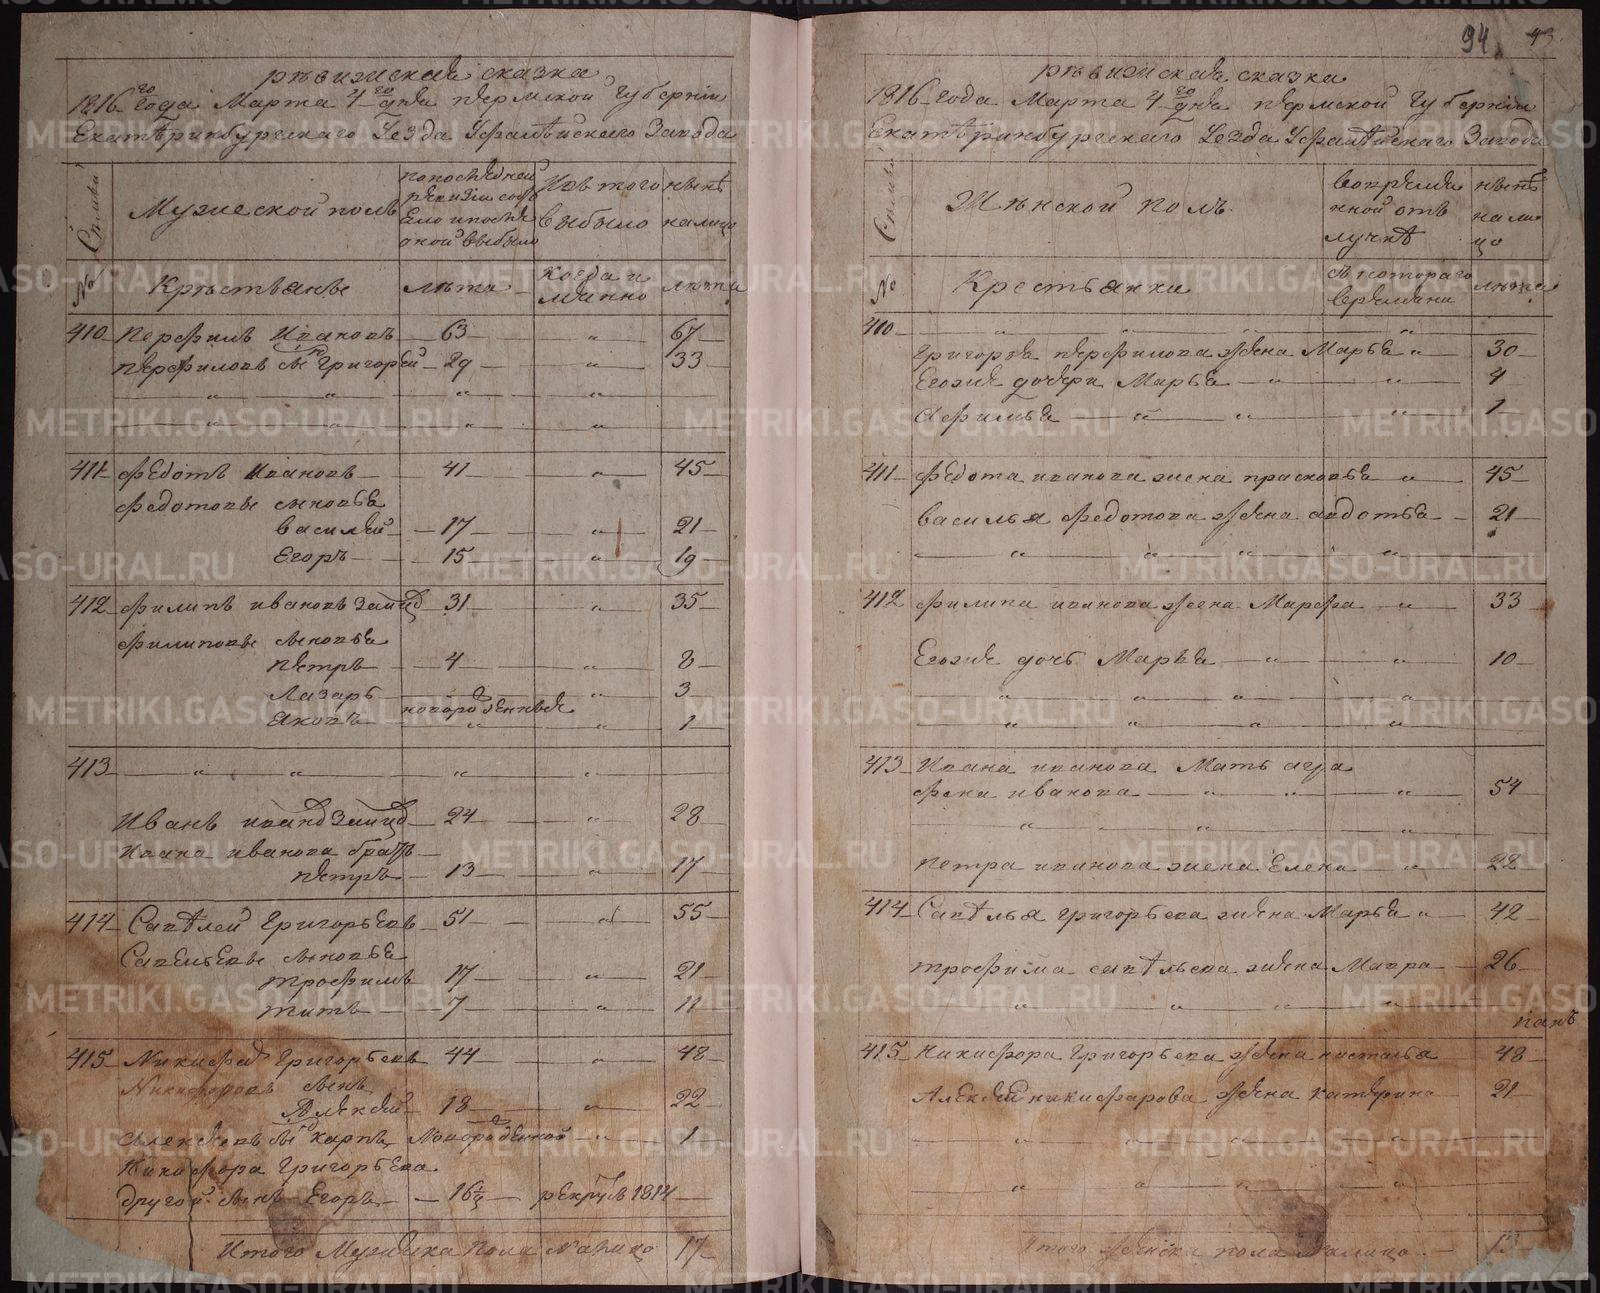 94 43
рѣвизская сказка
1816 го года Марта 4 го дня пермской губернiи
Екатѣринбургскаго Уезда Уфалѣйскаго Завода
Семьи
№
Мужеской полъ
попоследней ревизiи состо
Ело ипосле оной выбыло
Изъ того выбыло
нынѣ налицо
Крѣстьянѣ
лѣта
когда и
лѣта
410 Перфилъ Ивановъ 63 „ 67
перфиловъ сынъ григорей 29 „ 33
„ „ „ „
„ „ „ „
411 Федотъ Ивановъ 41 „ 45
федотовы сыновья
василей 17 „ 21
Егоръ 15 „ 19
412 филипъ ивановъ зайцо 31 „ 35
филиповы сыновья
петръ 4 „ 8
Лазарь новорожденныя „ 3
яковъ „ „ 1
413 „ „ „ „
Иванъ ивановъ зайцо 24 „ 28
Ивана иванова братъ
петръ 13 „ 17
414 Савѣлей григорьевъ 51 „ 55
Савельевы сыновья
трофимъ 17 „ 21
титъ 7 „ 11
415 Никифоръ григорьевъ 44 „ 48
Никифоровъ сынъ
Алексей 18 „ 22
алексеевъ сынъ карпъ новорожденной „ 1
Никифора григорьева
другой сынъ Егоръ 16 1/2 рекрутъ 1814
Итого Мужеска пола налицо 17
рѣвизская сказка
1816 года Марта 4 го дня пермской губернiи
Екатѣринбургскаго Уезда Уфалѣйскаго Завода
Семьи
№
Жѣнской полъ
вовремянной отлучкѣ
нынѣ налицо
Крестьянки
съ котораго времяни
лѣта
410 „ „ „
григорья перфилова жена Марья „ 30
Егоже дочери Марья „ „ 4
Афимья „ „ „ 1
411 федота иванова жена прасковья „ 45
василья федотова жена авдотья 21
„ „ „ „
412 филипа иванова жена Марфа „ 33
Егоже дочь Марья „ „ 10
„ „ „ „
„ „ „ „
413 Ивана иванова Мать агра
фена иванова „ „ „ 54
„ „ „
петра иванова жена Елена „ 22
414 Савѣлья григорьева жена Марья „ 42
трофима савѣльева жена Мавра 26
„ „ „ „
415 Никифора григорьева жена настасья 48
Алексей никифарова жена катерина 21
„ „ „ „ „
„ „ „ „
Итого женска пола налицо 13
METRIKI.GASO-URAL.RU